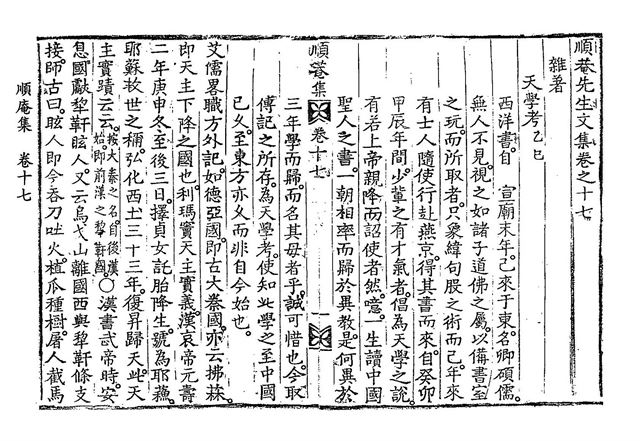 順菴先生文集卷之十七
雜著
天學考 乙巳
西洋書。自 宣廟末年。已來于東。名卿碩儒。
無人不見。視之如諸子道佛之屬。以備書室
之玩。而所取者。只象緯句股之術而已。年來
有士人隨使行赴燕京。得其書而來。自癸卯
甲辰年間。少輩之有才氣者。倡為天學之說。
有若上帝親降而詔使者然。噫。一生讀中國
聖人之書。一朝相率而歸於異教。是何異於
順菴集 卷十七
三年學而歸。而名其母者乎。誠可惜也。今取
傳記之所存。為天學考。使知此學之至中國
已久。至東方亦久。而非自今始也。
艾儒畧職方外記。如德亞國即古大秦國。亦云拂菻。
即天主下降之國也。利瑪竇天主實義。漢哀帝元壽
二年庚申冬至後三日。擇貞女託胎降生。號為耶穌。
耶穌救世之稱。弘化西土三十三年。復昇歸天。此天
主實蹟云云。按大秦之名。自後漢始。即前漢之犂靬國。○漢書武帝時。安
息國獻犂靬眩人。又云烏弋山離國西與犂靬條支
接。師古曰。眩人即今吞刀吐火。植瓜種樹。屠人截馬
順庵集 卷十七